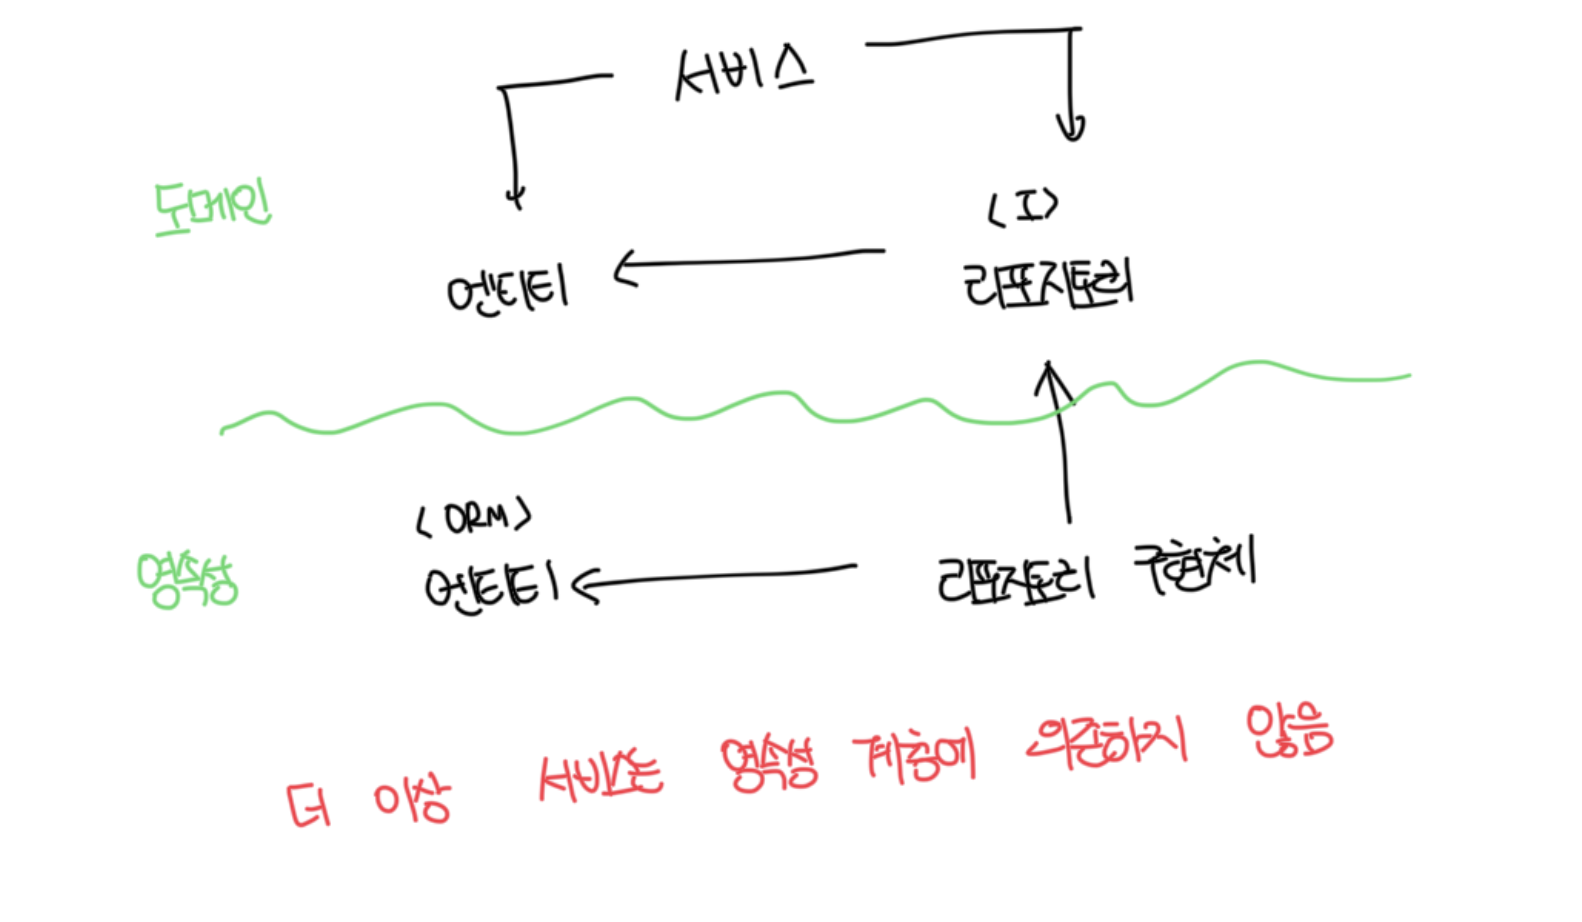 서비스
도메인
<I>
엔티티
리포지토리
<ORM>
영속성
엔티티
리포지토리 구현체
더 이상 서비스는 영속성 계층에 의존하지 않음